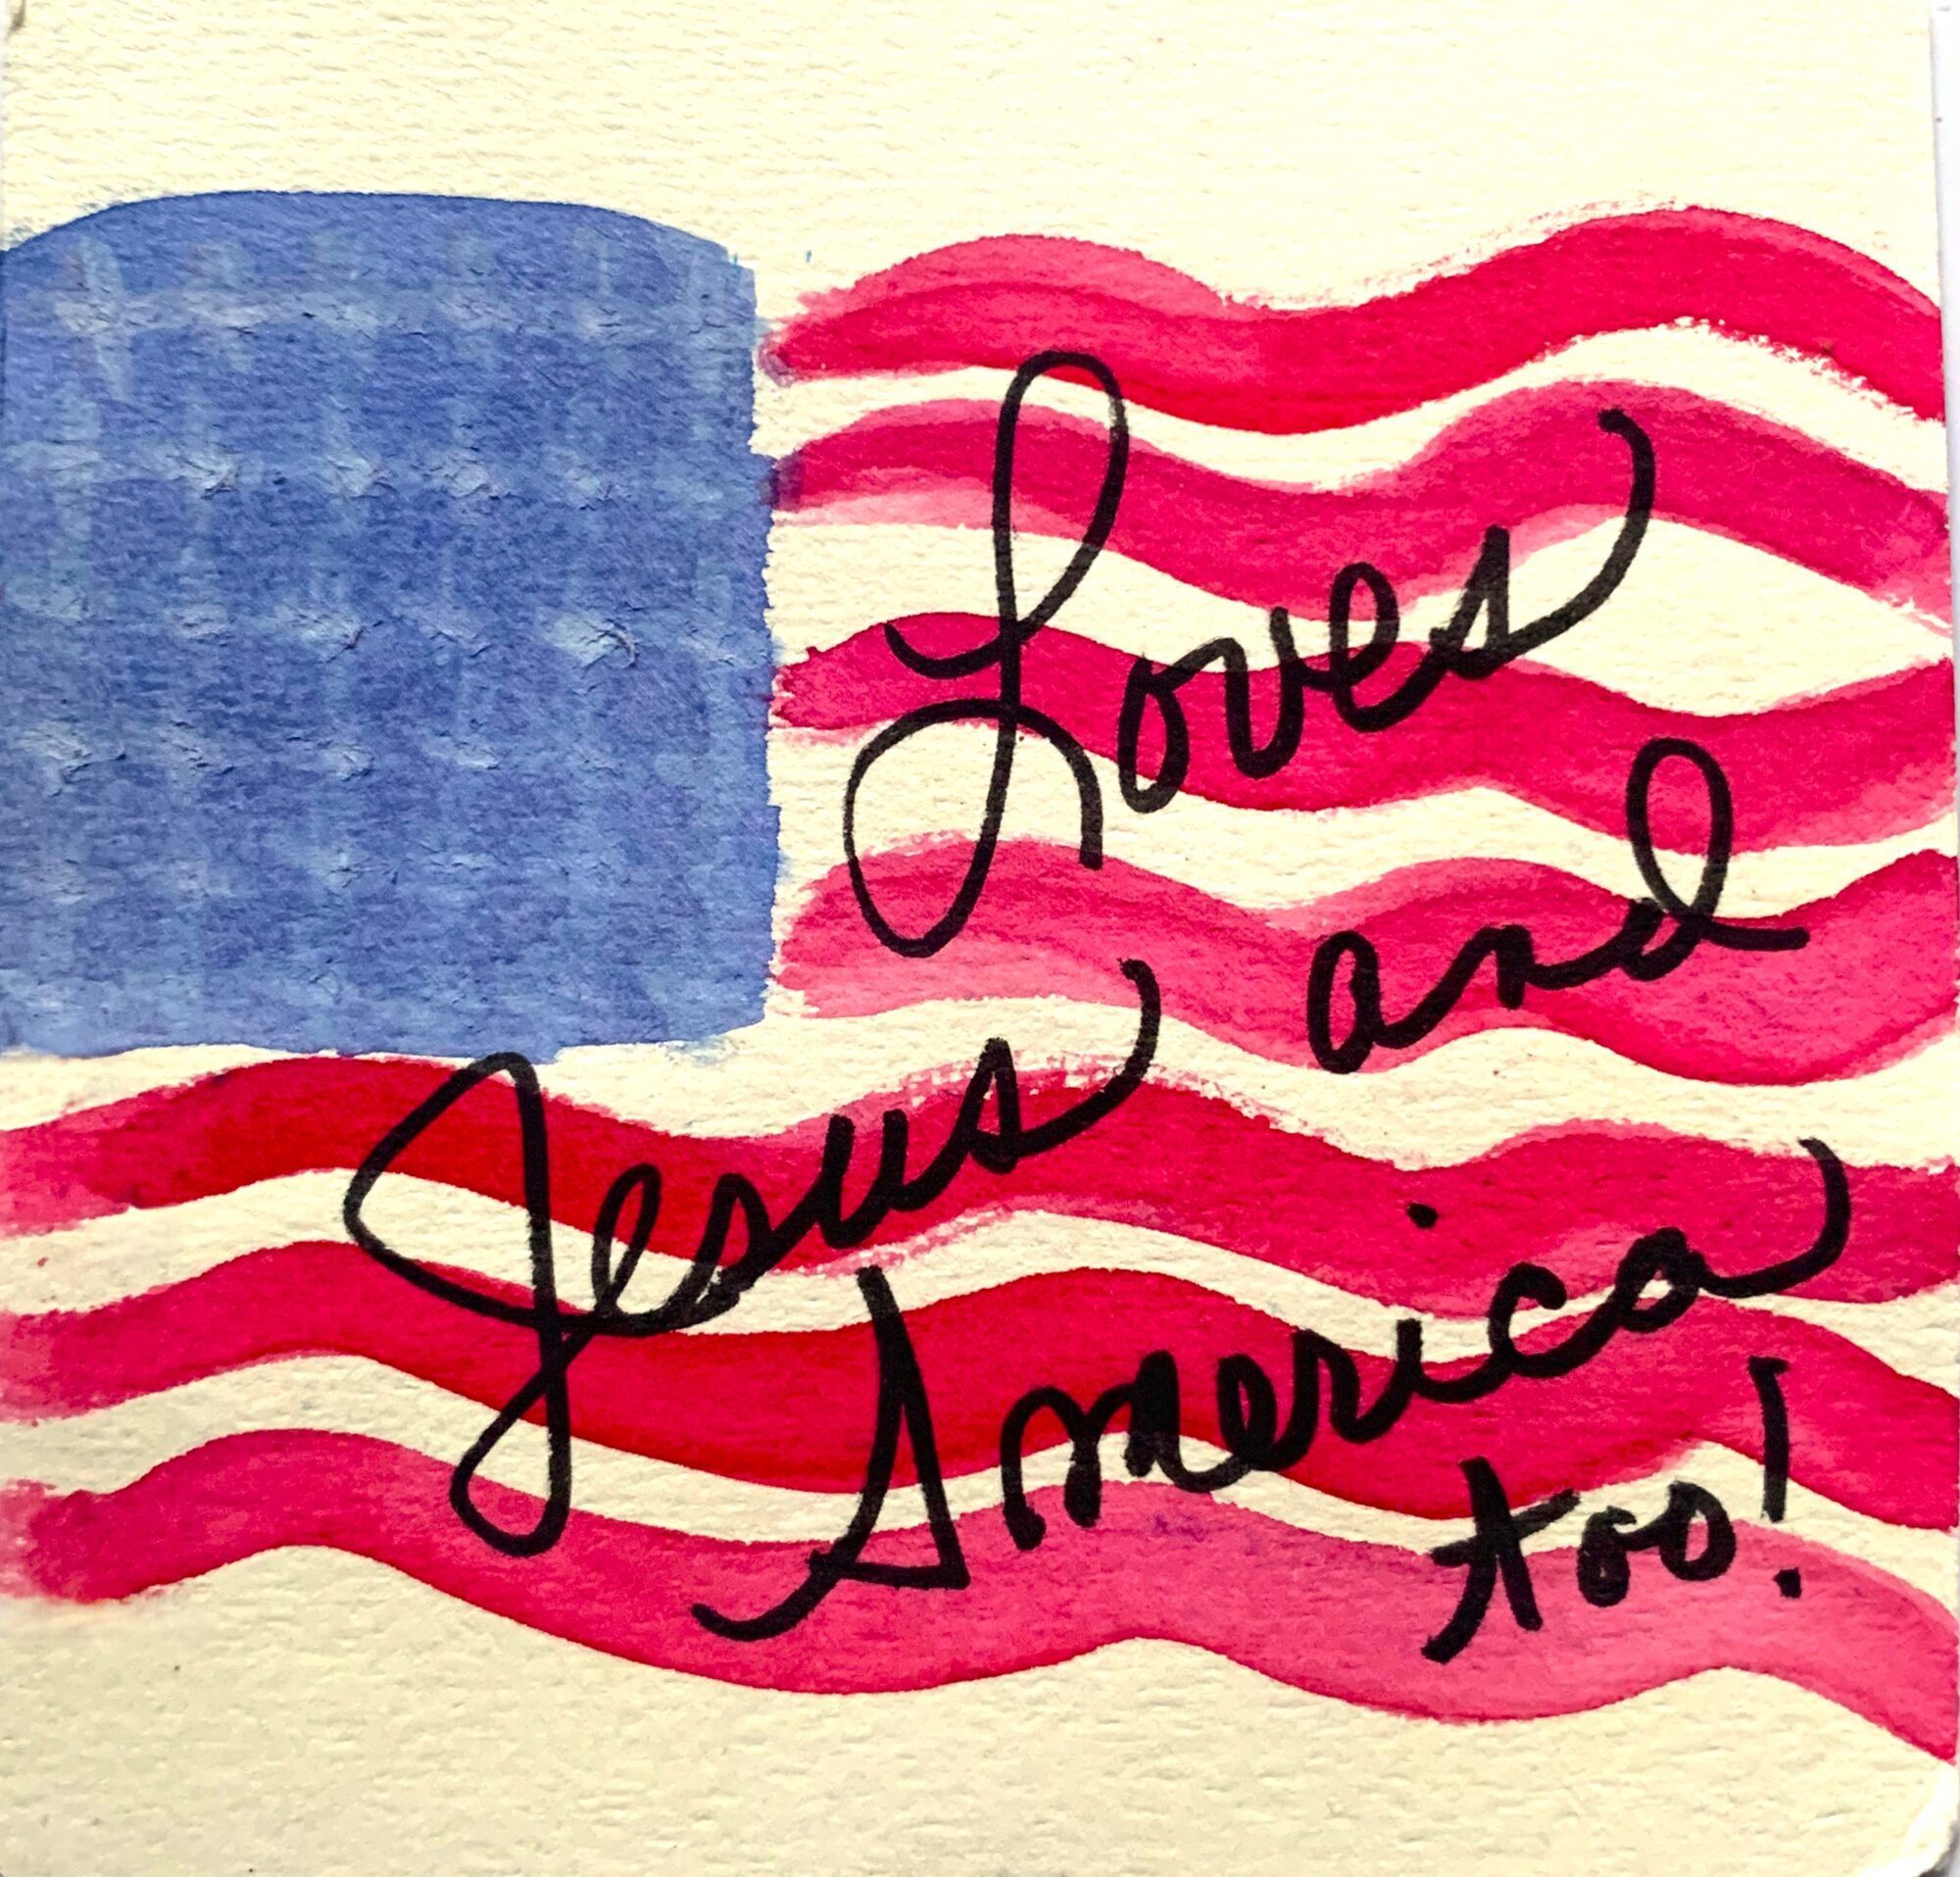 Loves
Jesus and
America
too!